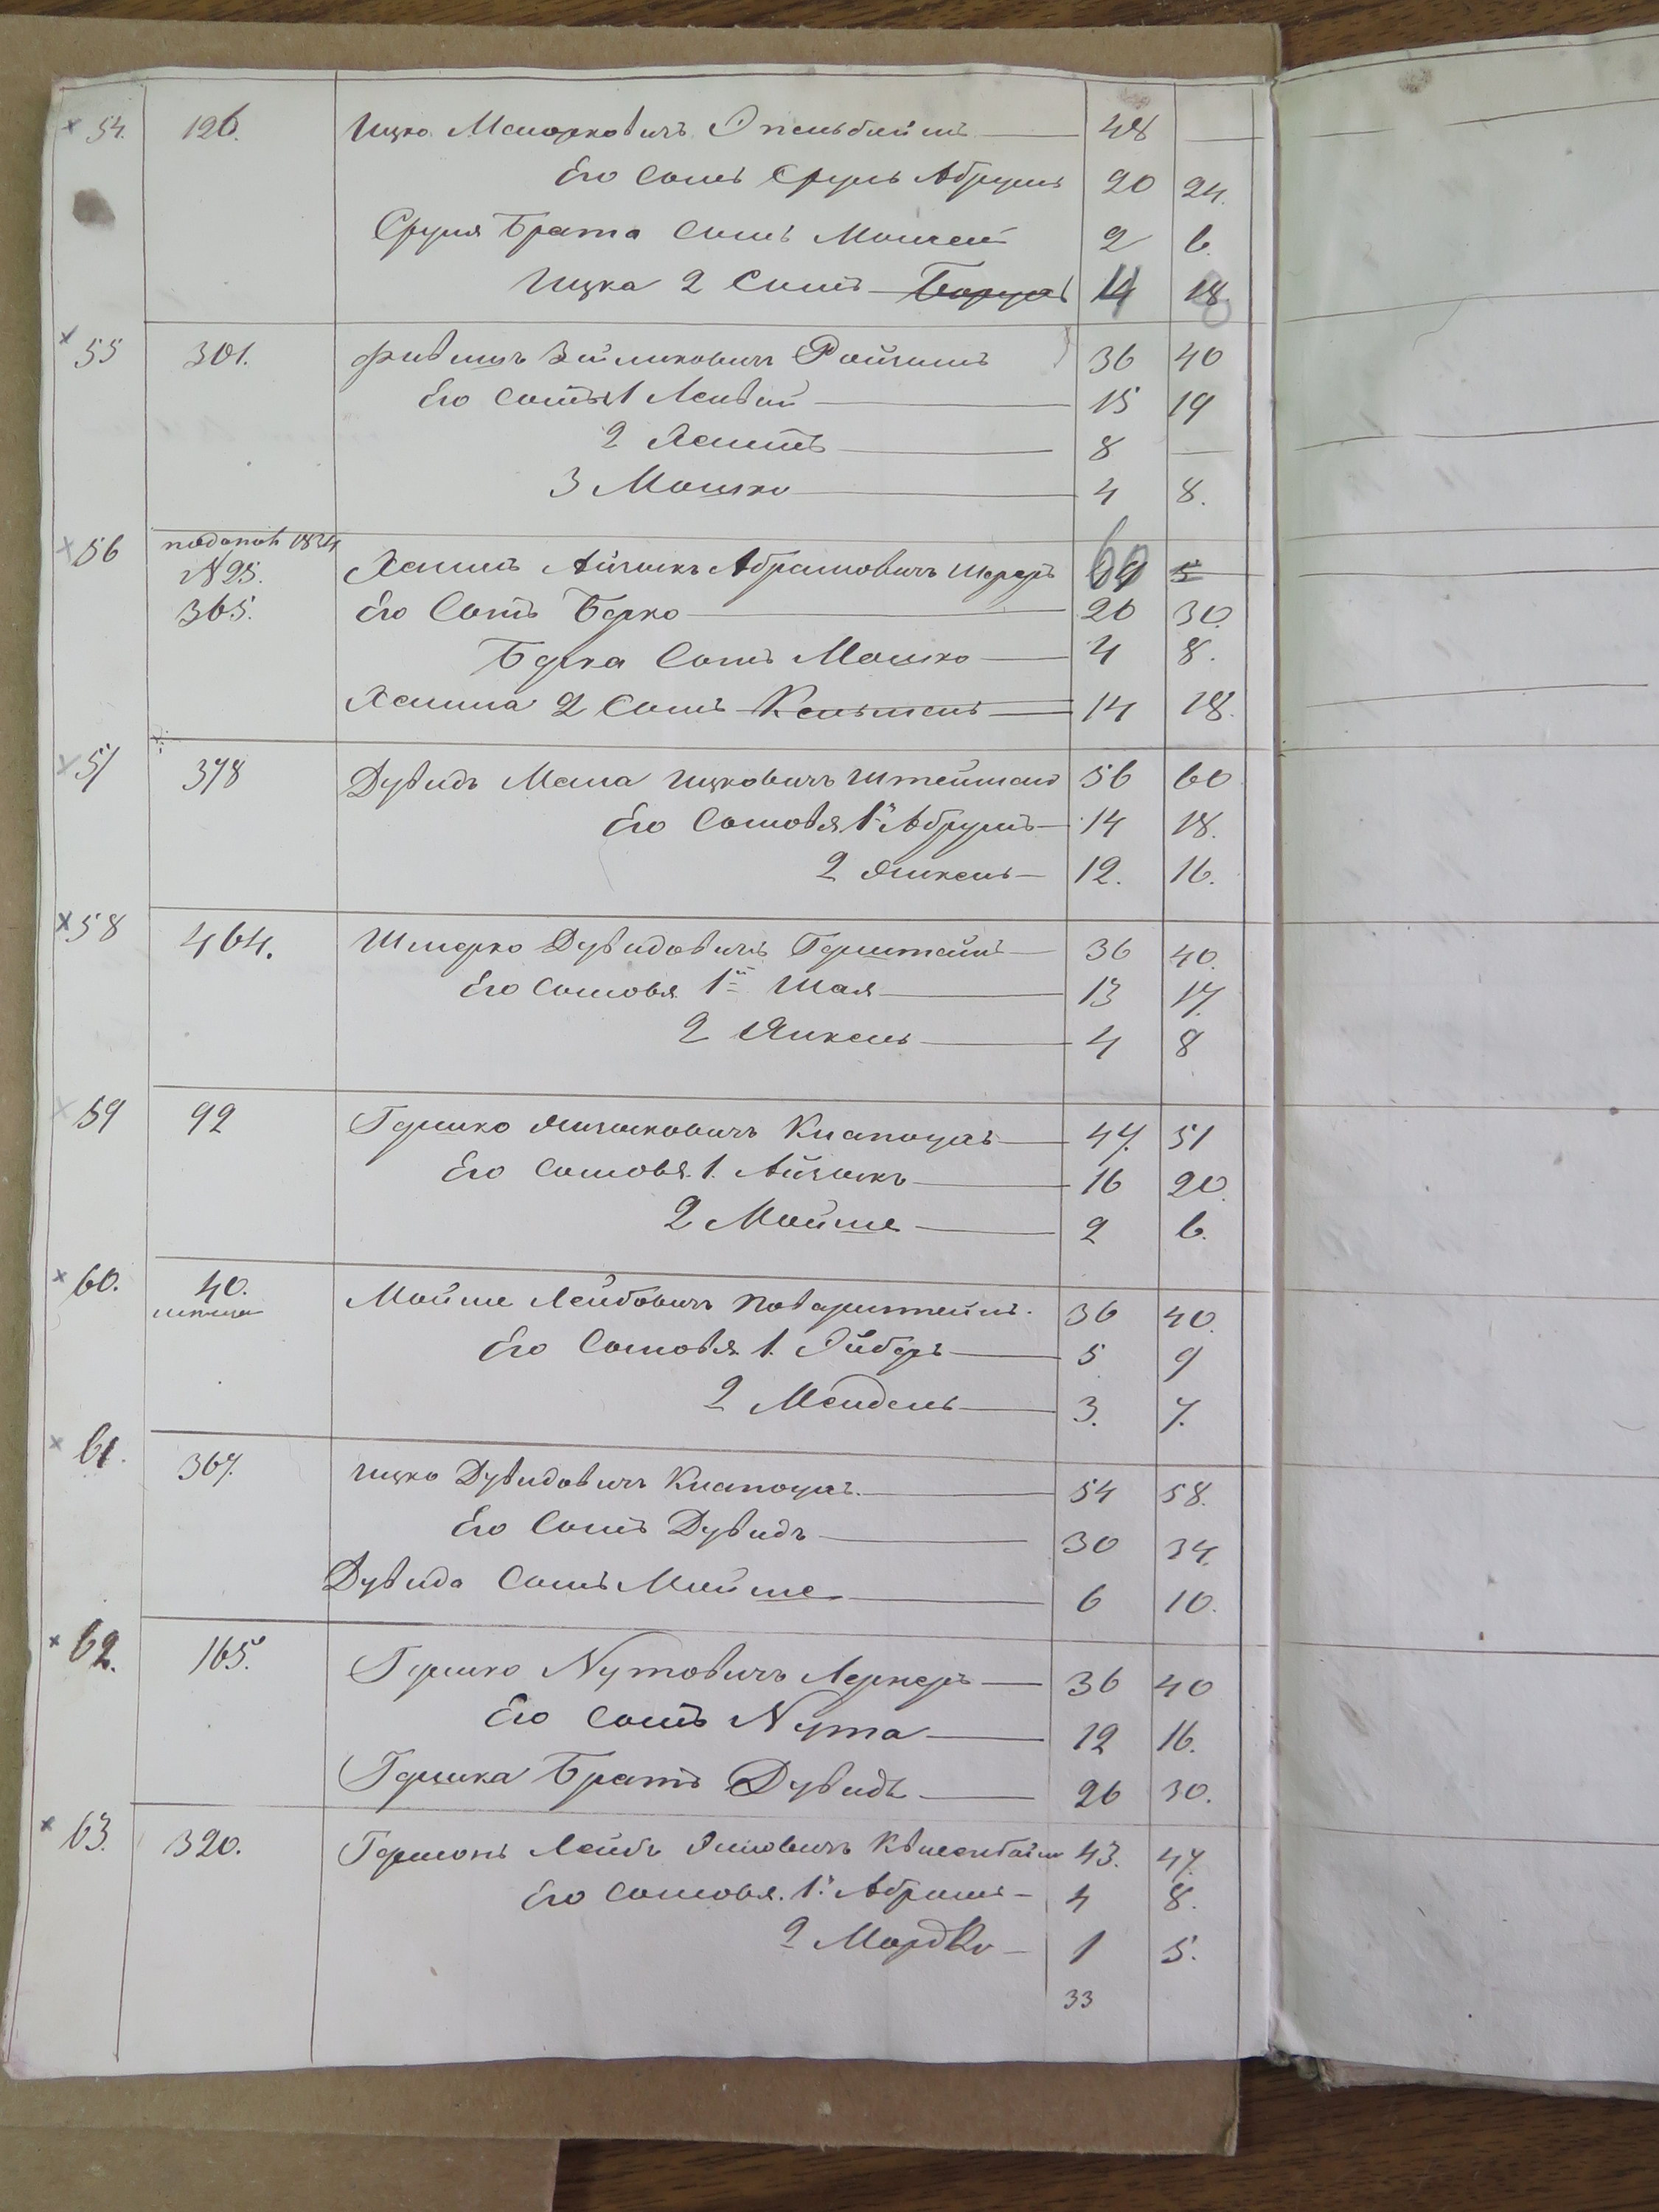 54. 126. Ицко Меиорковичъ 48
Его Сынъ Сруль Абрумъ 20 24.
Сруля Брата Сынъ Моисей 2 6.
Ицка 2 Сынъ Борухъ 14 18.
55 301. Фивишъ Зейликовичъ Ройзинъ 36 40
Его Сынъ 1 Лейвий 15 19
2 Хаимъ 8
3 Мошко 4 8.
56 1834
№ 25. Хаимъ Айзикъ Абрамовичъ Шереръ 69 5
365. Его Сынъ Берко 26 30.
Берка Сынъ Мошко 4 8.
Хаима 2 Сынъ Кельманъ 14 18.
57 378 Дувидъ Меша Ицковичъ Штейнманъ 56 60
Его Сыновья 1й Абрумъ 14 18.
2 Янкель 12. 16.
58 464. Шмерко Дувидовичъ Герштейнъ 36 40.
Его Сыновья 1й Шая 13 17.
2 Янкель 4 8
59 92 Гершко Айзиковичъ Кнапоцъ 47. 51
Его Сыновья. 1. Айзикъ 16 20.
2 Мойше 2 6.
60. 40. Мойше Лейбовичъ 36 40.
Его Сыновья. 1. Лейберъ 5 9
2 Мендель 3. 7.
61. 367. Ицко Дувидовичъ Кнапоцъ. 54 58.
Его Сынъ Дувидъ 30 34.
Дувида Сынъ Мойше 6 10.
62. 165. Гершко Нутовичъ Лернеръ 36 40
Его Сынъ Нута 12 16.
Гершка Братъ Дувидъ 26 30.
63. 320. Гершонъ Лейбъ 43. 47.
Его Сыновья. 1й Абрамъ 4 8.
2 Мордко 1 5.
33